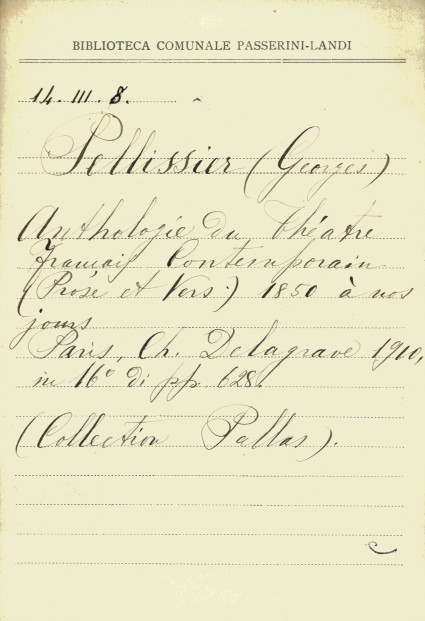 BIBLIOTECA COMUNALE PASSERINI-LANDI
14. III. 8.
Pellissier (Georges)
Anthologie du théatre
français contemporain
(Prose et Vers.) 1850 à nos
jours
Paris, Ch. Delagrave 1910,
in 16° di pp. 628.
(Collection Pallas).